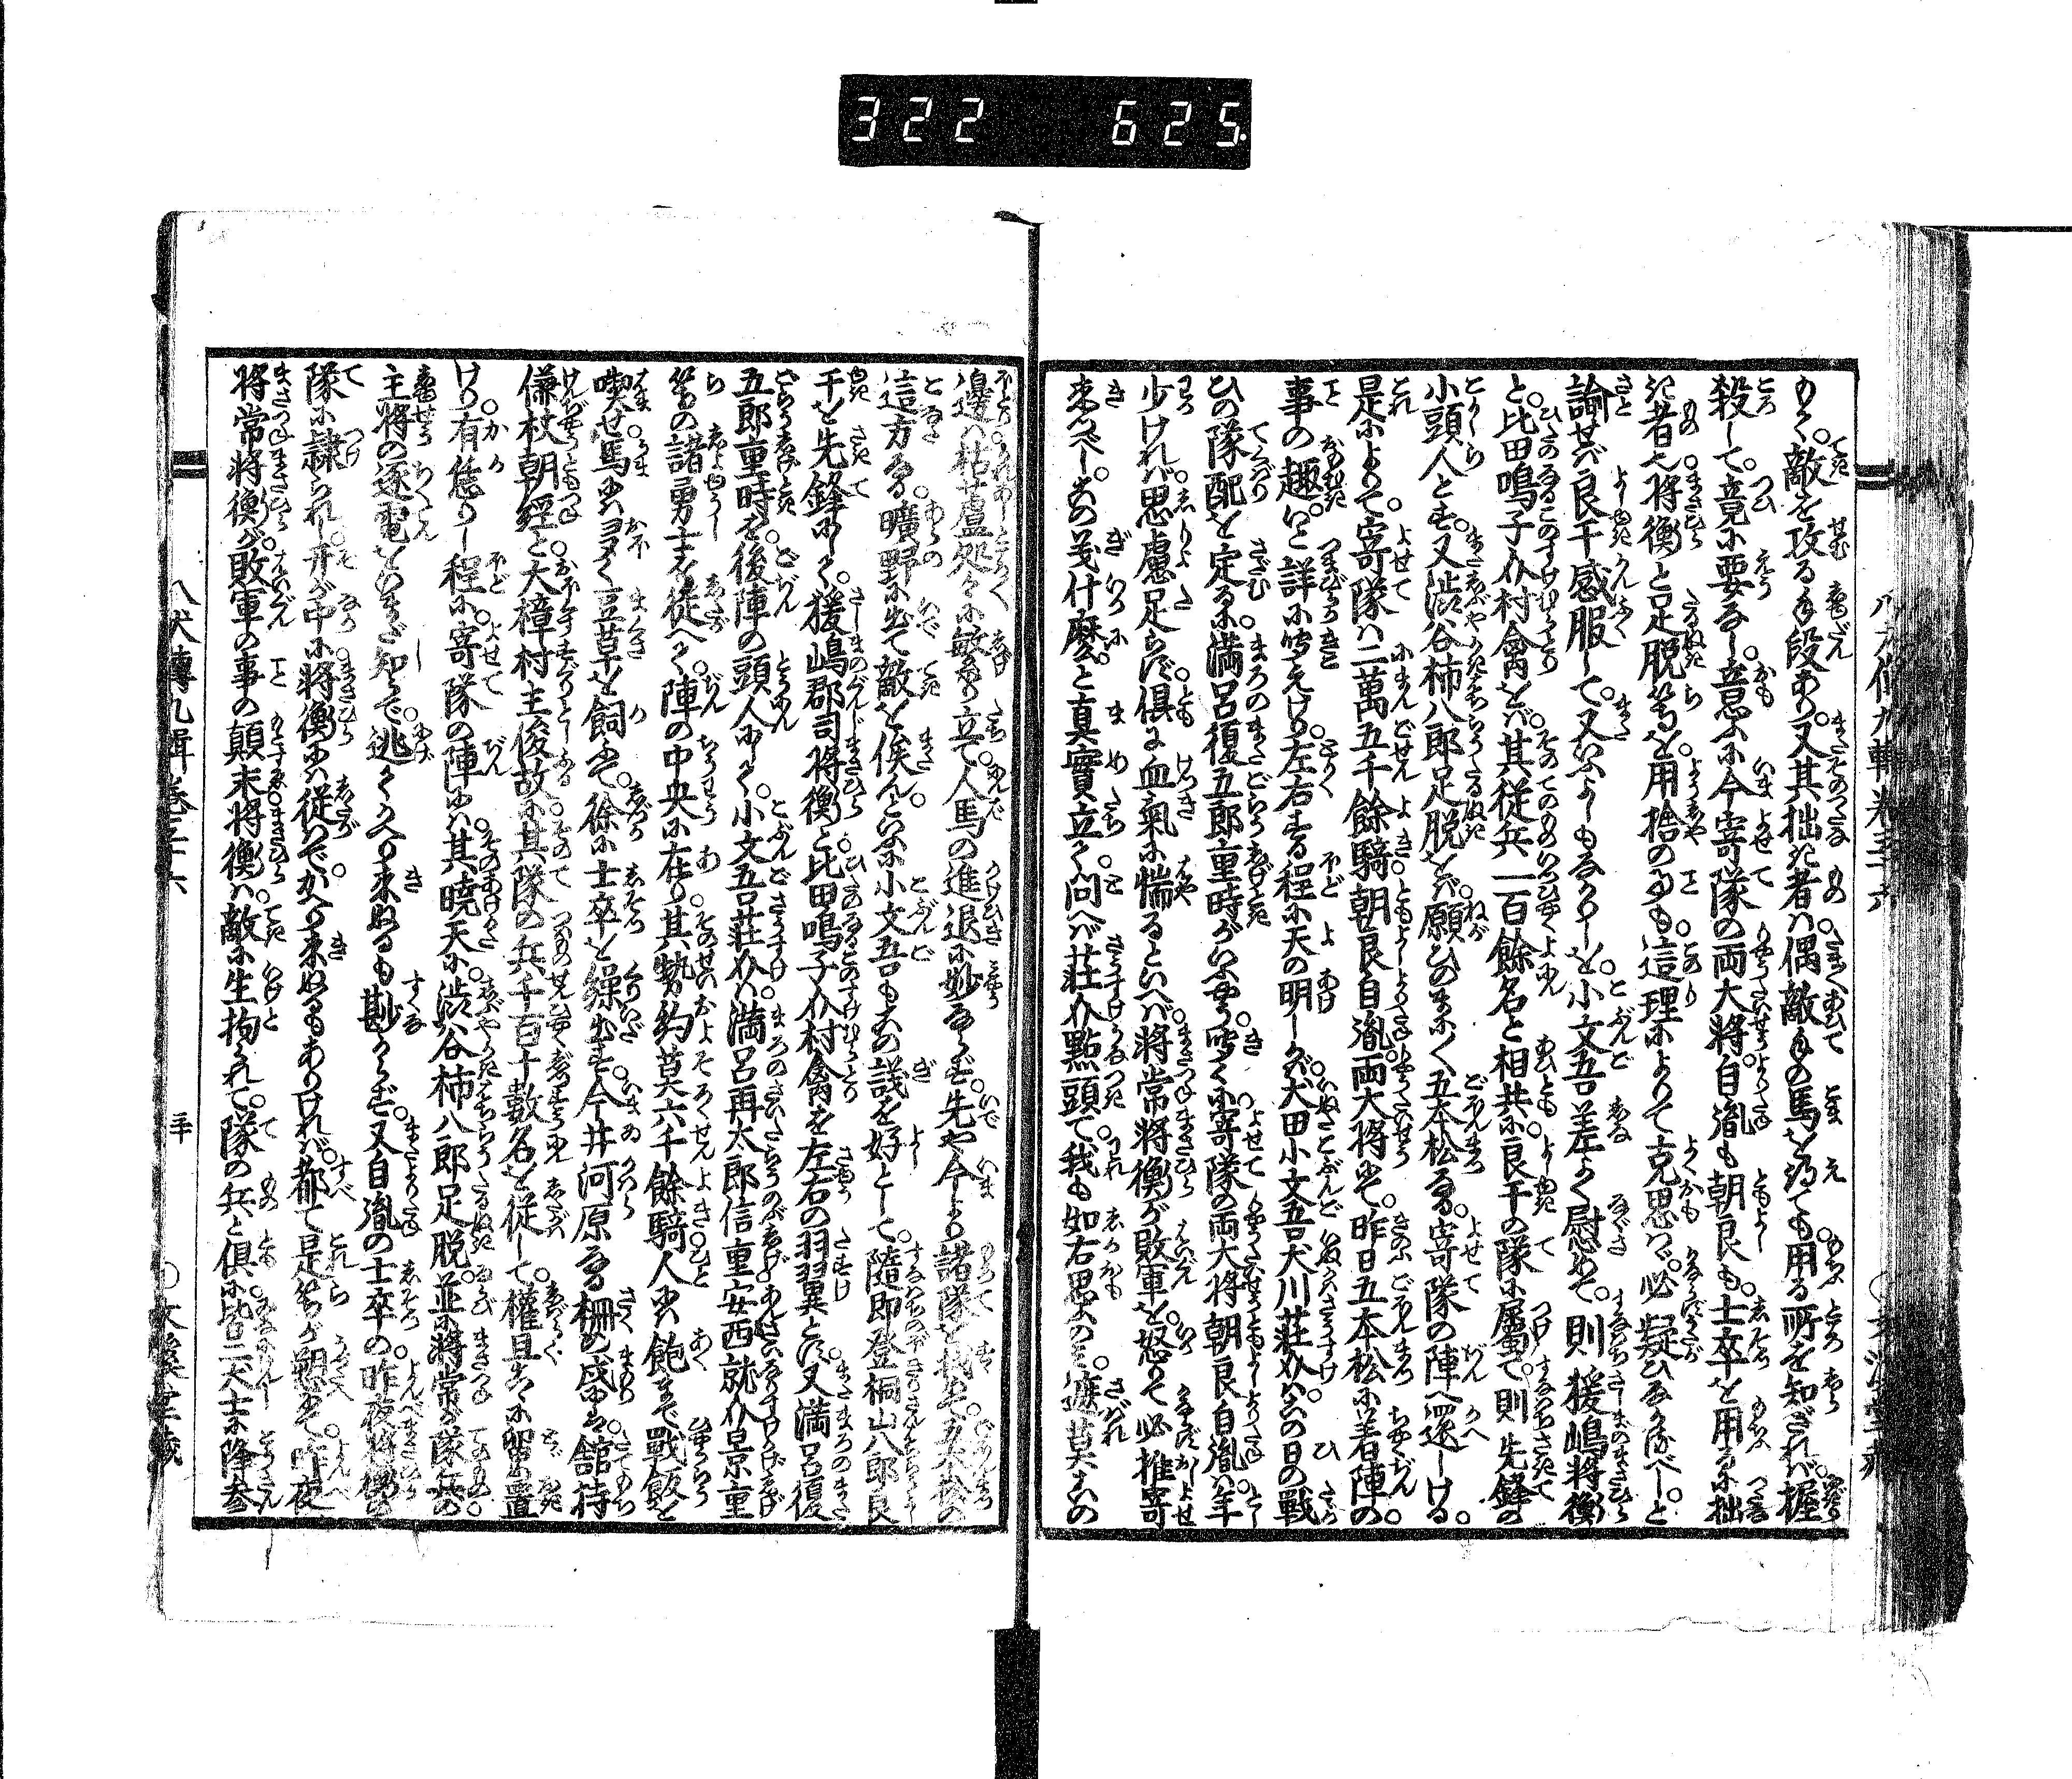 322 625
もて敵を攻る手段あり又其拙き者は偶敵の馬を得ても用る所を知ざれば握
殺して竟に要なし意ふに今寄隊の両大将自胤も朝良も士卒を用るに拙
き者也将衡と足脱等を用捨の事も這理によりて克思はゞ必疑ひなかるべしと
諭せば良干感服して又いふよしもなかりしを小文吾差よく慰めて則猨嶋将衡
と比田鳴子介村禽とは其従兵一百餘名と相共に良干の隊に属て則先鋒の
小頭人とす又渋谷柿八郎足脱をば願ひのまに〳〵五本松なる寄隊の陣へ還しける
是によりて寄隊は二萬五千餘騎朝良自胤両大将にて昨日五本松に着陣の
事の趣いと詳に聞えけり左右する程に天の明しかば犬田小文吾犬川荘介はこの日の戦
ひの隊配を定るに満呂復五郎重時がいふやう聞くに寄隊の両大将朝良自胤は年
少ければ思慮足らず倶に血氣に惴るといへば将常将衡が敗軍を怒りて必推寄
来べしこの義什麼と真實立て問へば荘介點頭て我も如右思ふのみ遮莫この
邊は枯蘆処々に敏系り立て人馬の進退に妙ならず先や今より諸隊を找めて五本松の
這方なる曠野に出て敵を俟んといふに小文吾もこの議を好として隨即登桐山八郎良
干を先鋒にして猨嶋郡司将衡と比田鳴子介村禽を左右の羽翼とす又満呂復
五郎重時を後陣の頭人にして小文吾荘介は満呂再太郎信重安西就介景重
等の諸勇士を従へて陣の中央に在り其勢約莫六千餘騎人には飽まで戦飯を
喫せ馬にはヨク豆草を飼にて徐に士卒を繰出す今井河原なる柵の戍には舘持
傔杖朝経と大樟村主俊故に其隊の兵千百十數名を従して權且こゝに留め置
けり有恁りし程に寄隊の陣には其暁天に渋谷柿八郎足脱並に将常が隊兵の
主将の逐電をいまだ知らで逃てかへり来ぬるも尠からず又自胤の士卒の昨夜将衡の
隊に隷られ廾が中に将衡には従はでかへり来ぬるもありければ都て是等が愬にて昨夜
将常将衡が敗軍の事の顛末将衡は敵に生拘られて隊の兵と倶に皆二犬士に降参
八犬傳九輯巻三十六